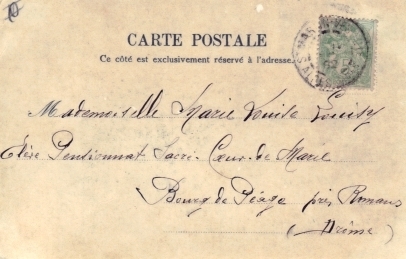 CARTE POSTALE
Ce côté est exclusivement réservé à l'adresse.
Mademoiselle Marie Louise Louisy
Élève Pensionnat Sacré-Cœur-de Marie
Bourg de Péage près Romans
(Drôme)